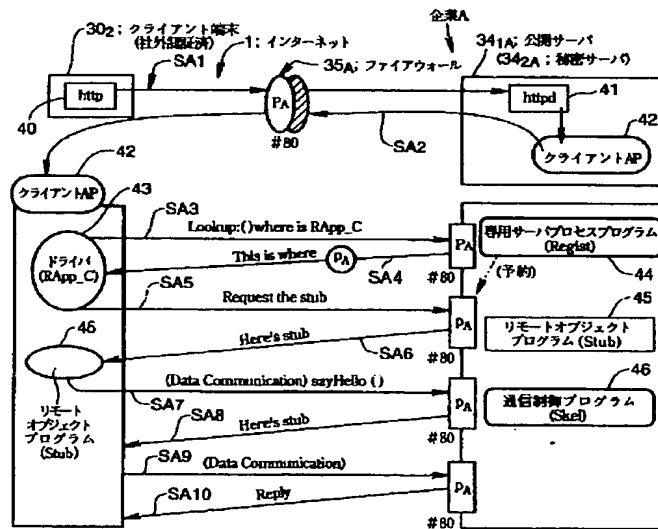 30₂; クライアント端末
(社外認証済)
1; インターネット
企業A
34₁A; 公開サーバ
(34₂A; 秘密サーバ)
SA1
35A; ファイアウォール
http
40
PA
#80
httpd
41
SA2
42
クライアントAP
42
クライアントAP
43
SA3
Lookup:()where is RApp_C
ドライバ
(RApp_C)
This is where
PA
SA4
PA
#80
専用サーバプロセスプログラム
(Regist)
44
(予約)
SA5
Request the stub
PA
#80
45
リモートオブジェクト
プログラム(Stub)
45
Here's stub
SA6
リモート
オブジェクト
プログラム
(Stub)
(Data Communication) sayHello ()
SA7
PA
#80
46
通信制御プログラム
(Skel)
SA8
Here's stub
SA9
(Data Communication)
PA
#80
SA10
Reply